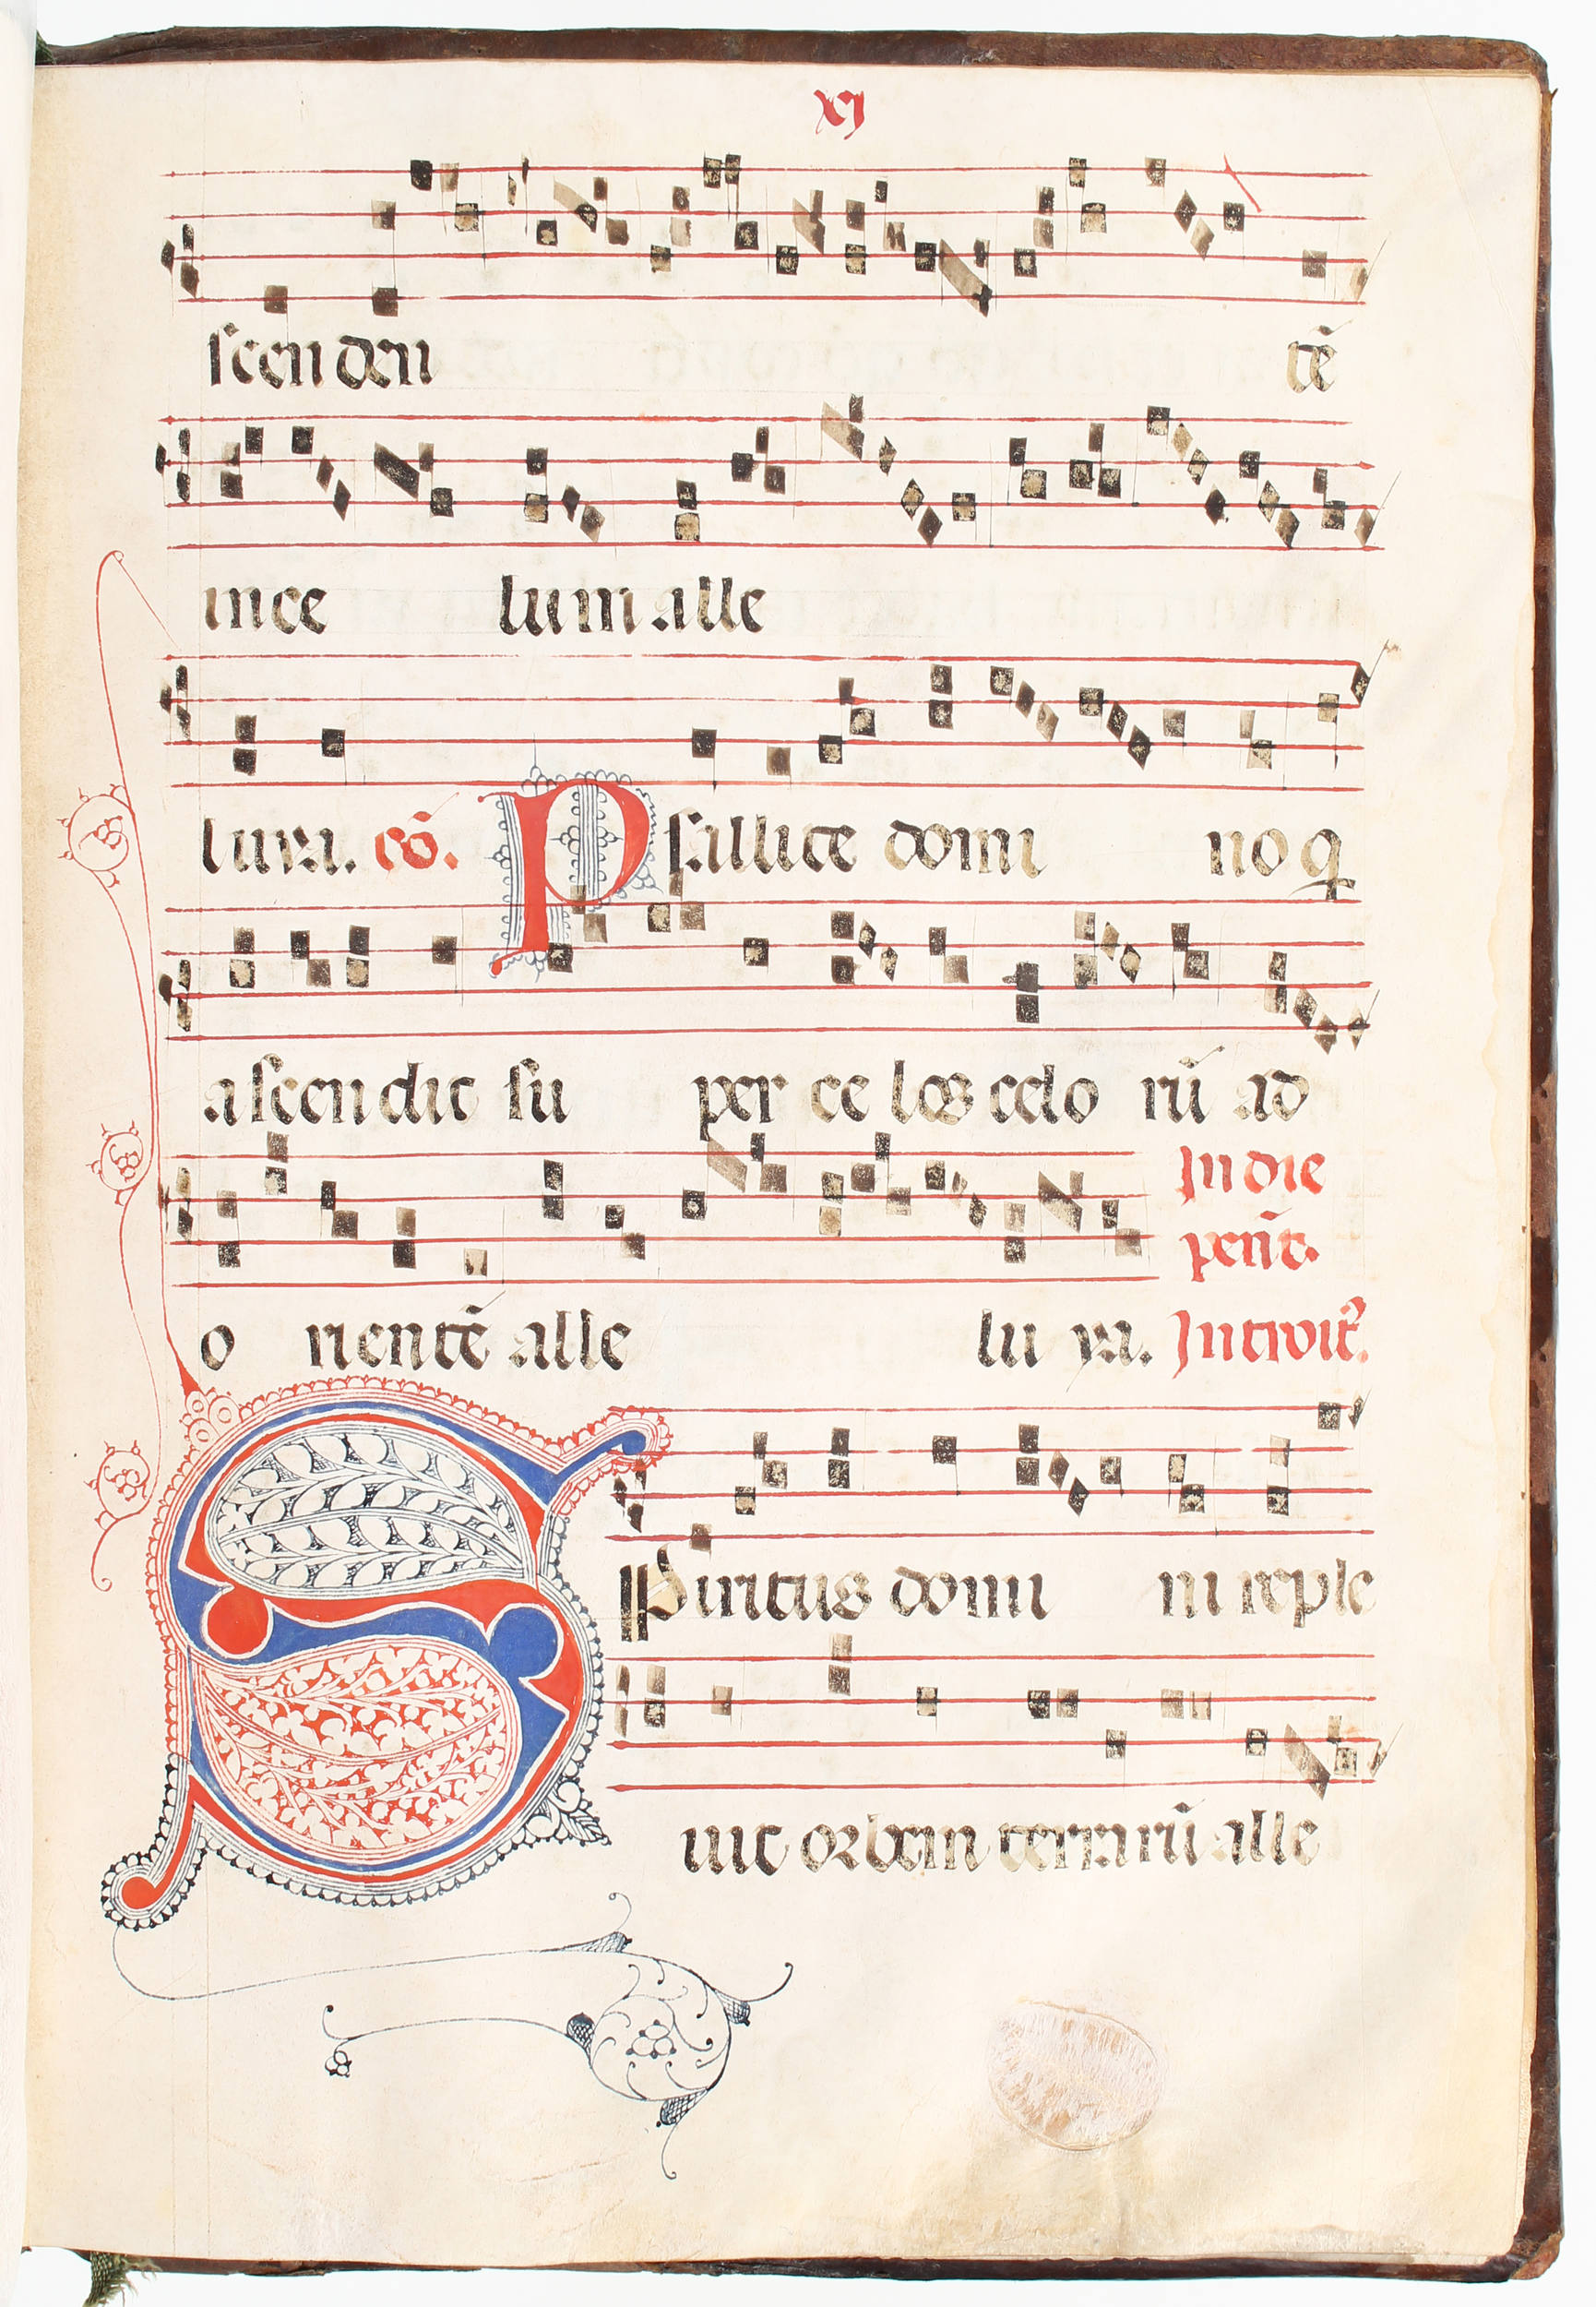 xj
scenden tē
ince lum alle
luya. cō. Psallite domi no q
ascendit su per ce los celo rū ad
In die
pent̄.
o rientē alle lu ya. Introit9.
SPiritus domi ni reple
uit orbem terrarū alle